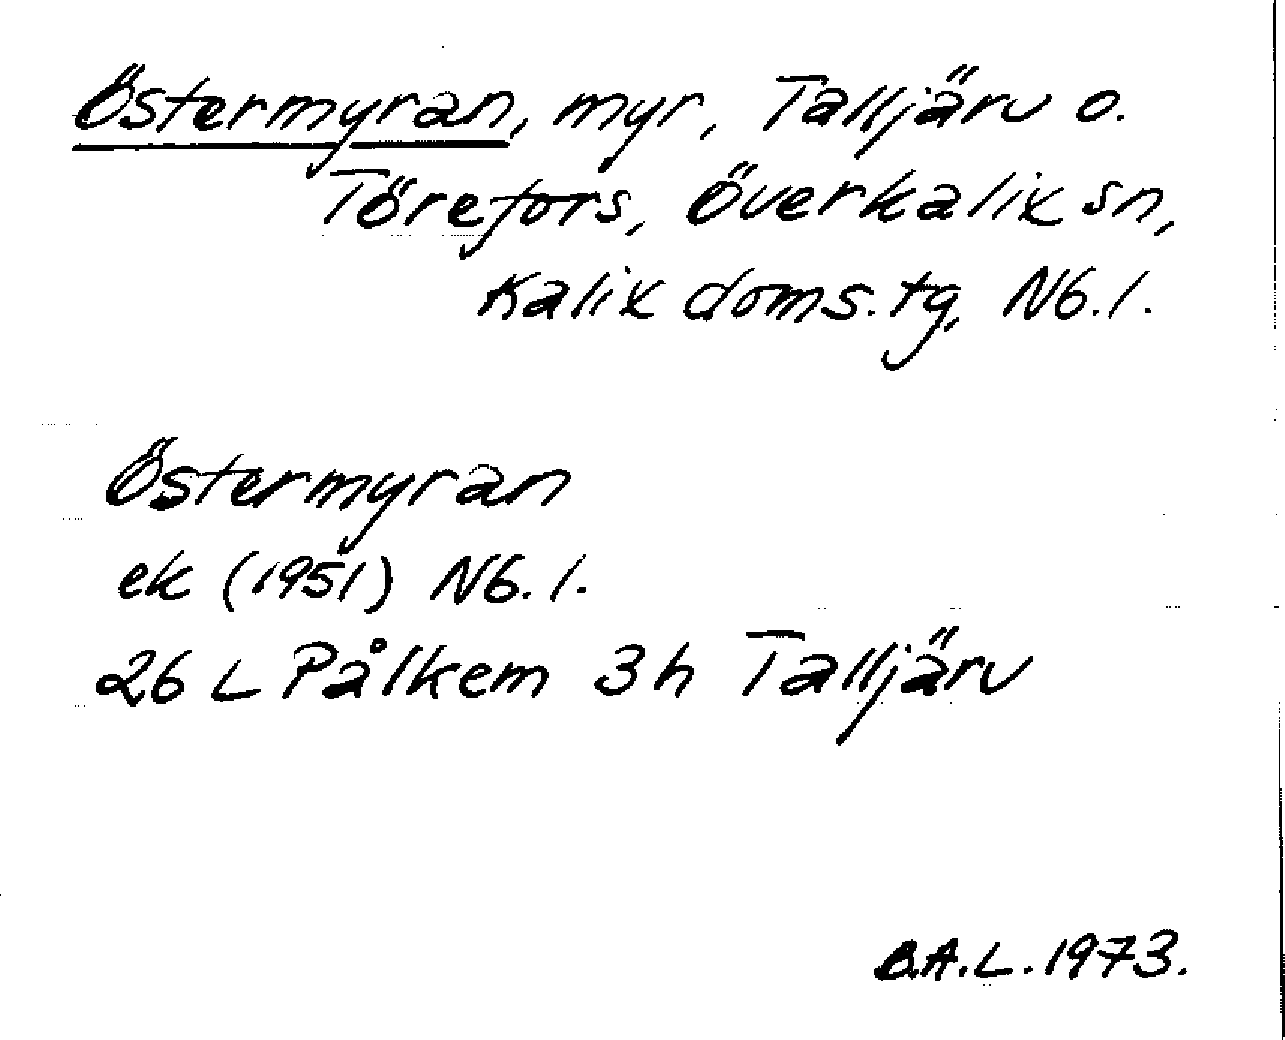 Östermyran, myr, Talljärv o.
Törefors, Överkalix sn,
Kalix doms.tg, Nb.l.
Östermyran
ek (1951) Nb.l.
26 L Pålkem 3h Talljärv
B.A.L. 1973.